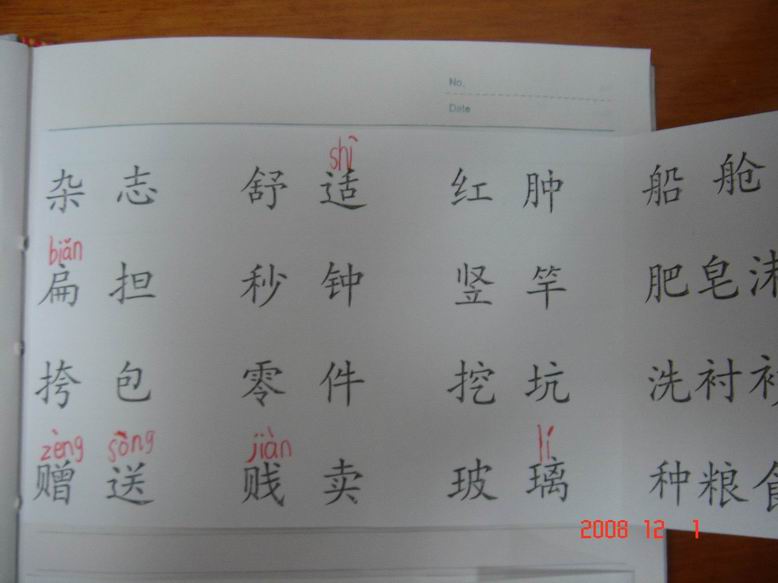 No.
Date
shì
杂志 舒适 红肿 船舱
biǎn
扁担 秒钟 竖竿 肥皂
挎包 零件 挖坑 洗衬
zèng sòng jiàn lí
赠送 贱卖 玻璃 种粮
2008 12 1